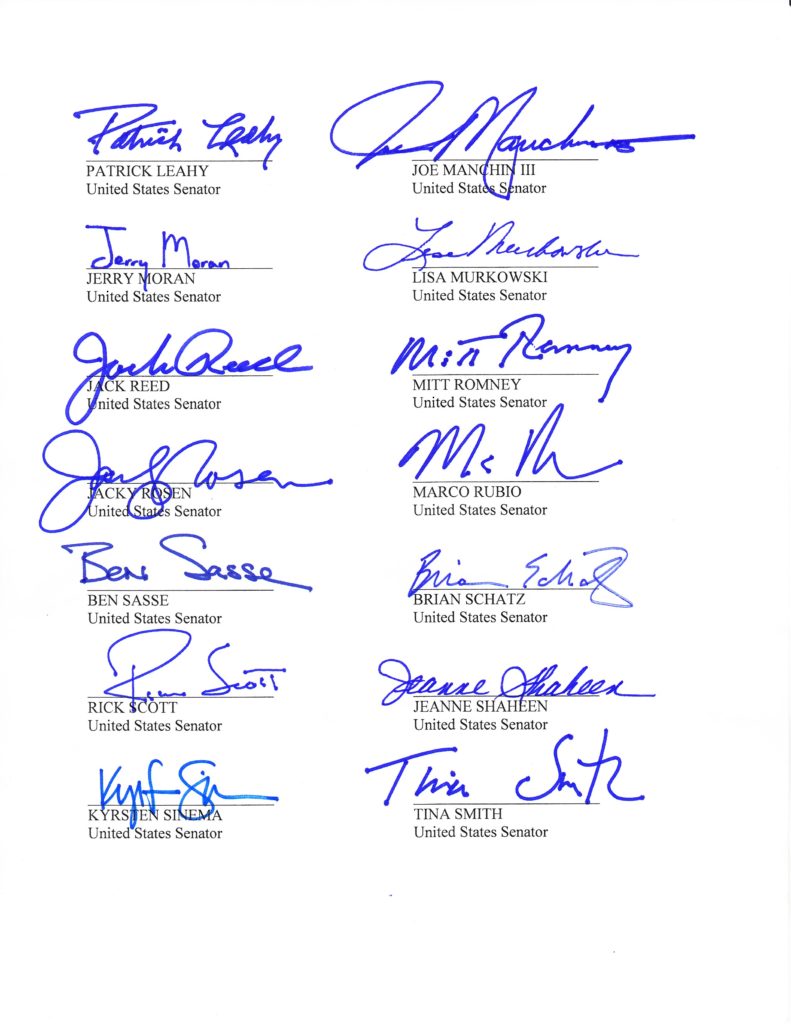 Patrick Leahy
PATRICK LEAHY
United States Senator
Joe Manchin
JOE MANCHIN III
United States Senator
Jerry Moran
JERRY MORAN
United States Senator
Lisa Murkowski
LISA MURKOWSKI
United States Senator
Jack Reed
JACK REED
United States Senator
Mitt Romney
MITT ROMNEY
United States Senator
Jacky Rosen
JACKY ROSEN
United States Senator
MARCO RUBIO
United States Senator
Ben Sasse
BEN SASSE
United States Senator
Brian Schatz
BRIAN SCHATZ
United States Senator
Rick Scott
RICK SCOTT
United States Senator
Jeanne Shaheen
JEANNE SHAHEEN
United States Senator
KYRSTEN SINEMA
United States Senator
Tina Smith
TINA SMITH
United States Senator